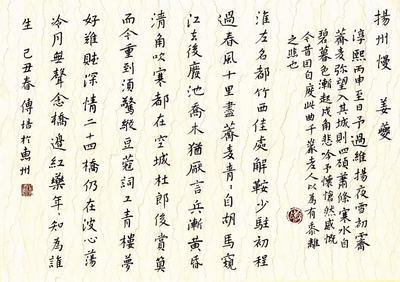 揚州慢 姜夔
淳熙丙申至日予過維揚夜雪初霽
薺麥弥望入其城則四顧蕭條寒水自
碧暮色漸起戍角悲吟予懷愴然感慨
今昔因自度此曲千巖老人以為有黍離
之悲也
淮左名都竹西佳處解鞍少駐初程
過春風十里盡薺麥青々自胡馬窺
江去後廢池喬木猶厭言兵漸黃昏
清角吹寒都在空城杜郎俊賞算
而今重到須驚縱豆蔻詞工青樓夢
好難賦深情二十四橋仍在波心蕩
冷月無聲念橋邊紅藥年々知為誰
生 己丑春 傅 於惠州